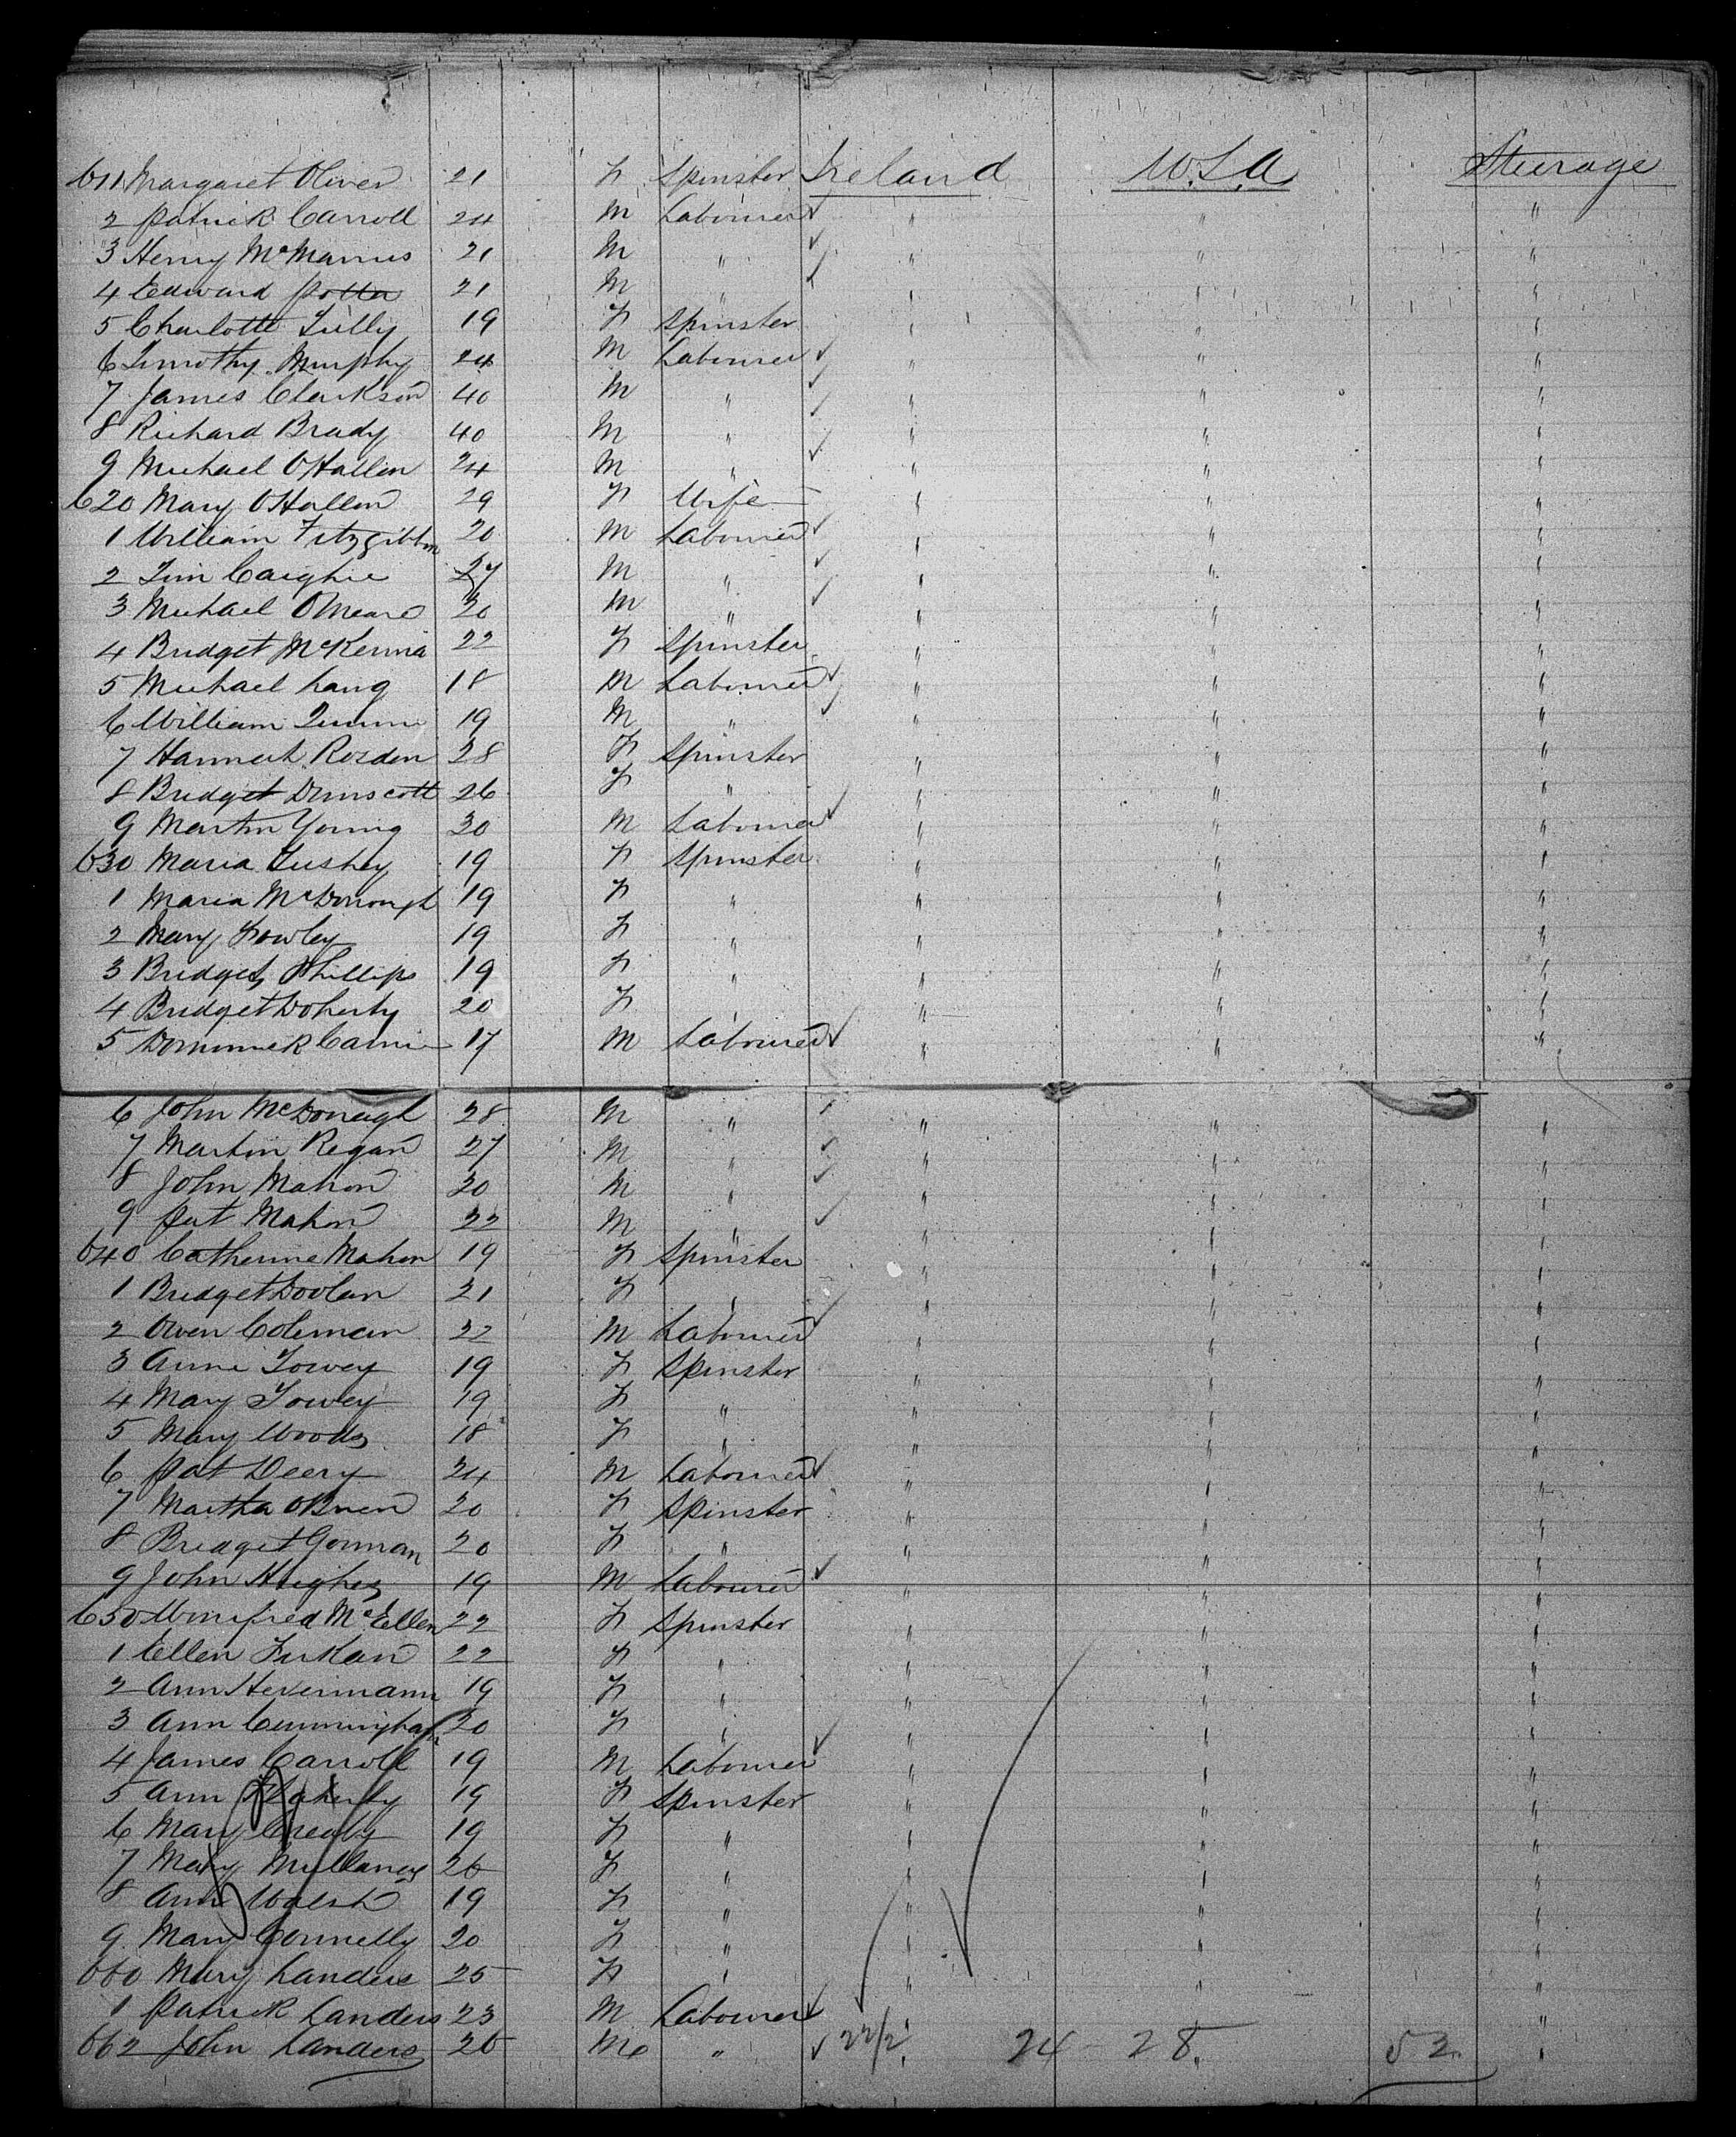 611 Margaret Oliver 21 F Spinster Ireland U.S.A. Steerage
2 Patrick Carroll 24 M Labourer " " "
3 Henry McManus 21 M " " " "
4 Edward Potter 21 M " " " "
5 Charlotte Tully 19 F Spinster " " "
6 Timothy Murphy 24 M Labourer " " "
7 James Clarkson 40 M " " " "
8 Richard Brady 40 M " " " "
9 Michael OHallon 24 M " " " "
620 Mary OHallon 29 F Wife " " "
1 William Fitzgibbon 20 M Labourer " " "
2 Tim 27 M " " " "
3 Michael OMeara 20 M " " " "
4 Bridget McKenna 22 F Spinster " " "
5 Michael Lang 18 M Labourer " " "
6 William Quinn 19 M " " " "
7 Hannah Rosden 28 F Spinster " " "
8 Bridget Dunscott 26 F " " " "
9 Martin Young 30 M Labourer " " "
630 Maria 19 F Spinster " " "
1 Maria McDonough 19 F " " " "
2 Mary Fowley 19 F " " " "
3 Bridget Phillips 19 F " " " "
4 Bridget Doherty 20 F " " "
5 Dominick 17 M Labourer " " "
6 John McDonagh 28 M " " " "
7 Martin Regan 27 M " " " "
8 John Mahon 30 M " " " "
9 Pat Mahon 22 M " " " "
640 Catherine Mahon 19 F Spinster " " "
1 Bridget Doolan 21 F " " " "
2 Owen Coleman 22 M Labourer " " "
3 Anne Towey 19 F Spinster " " "
4 Mary Towey 19 F " " " "
5 Mary Woods 18 F " " " "
6 Pat Deery 24 M Labourer " " "
7 Martha OBrien 20 F Spinster " " "
8 Bridget Gorman 20 F " " " "
9 John Hughes 19 M Labourer " " "
650 Winifred McEllen 22 F Spinster " " "
1 Ellen 22 F " " " "
2 Ann 19 F " " " "
3 Ann Cunningham 20 F " " " "
4 James Carroll 19 M Labourer " " "
5 Ann Flaherty 19 F Spinster " " "
6 Mary 19 F " " " "
7 Mary Mullaney 26 F " " " "
8 Ann Walsh 19 F " " " "
9 Mary Connelly 20 F " " " "
660 Mary Landers 25 F " " " "
1 Patrick Landers 23 M Labourer " " "
662 John Landers 26 M " 22/2 24 28 52 "